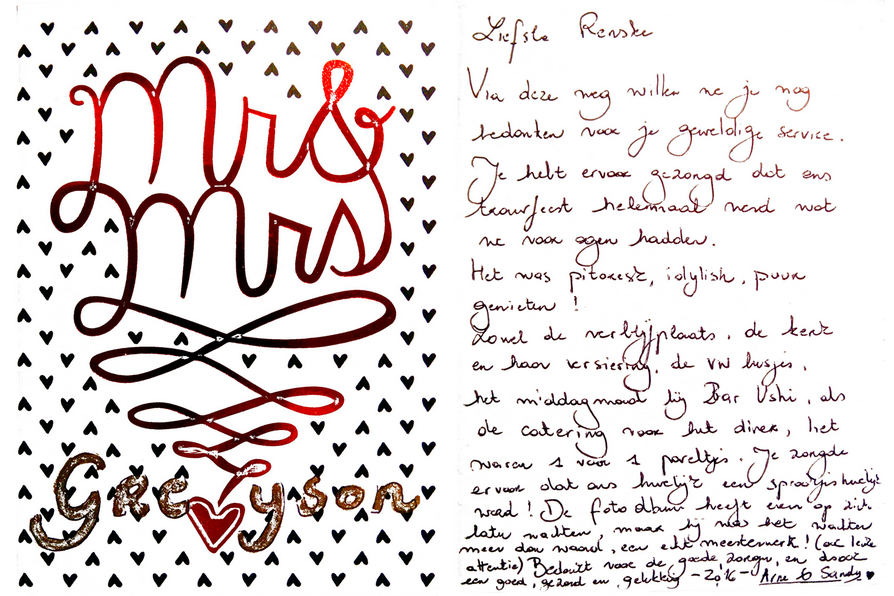 Mr &
Mrs
Greyson
Liefste Renske
Via deze weg willen we je nog
bedanken voor je geweldige service.
Je hebt ervoor gezorgd dat ons
trouwfeest helemaal werd wat
we voor ogen hadden.
Het was pitoresk, idylish, puur
genieten !
Zowel de verblijfplaats, de kerk
en haar versiering, de VW busjes,
het middagmaal bij Bar Ushi, als
de catering voor het diner, het
waren 1 voor 1 pareltjes. Je zorgde
ervoor dat ons huwelijk een sprookjeshuwelijk
werd ! De fotoalbum heeft even op zich
laten wachten, maar hij was het wachten
meer dan waard, een echt meesterwerk !
attentie) Bedankt voor de goede zorgen, en
een goed, gezond en gelukkig - 2016 - Arne & Sandy ♥